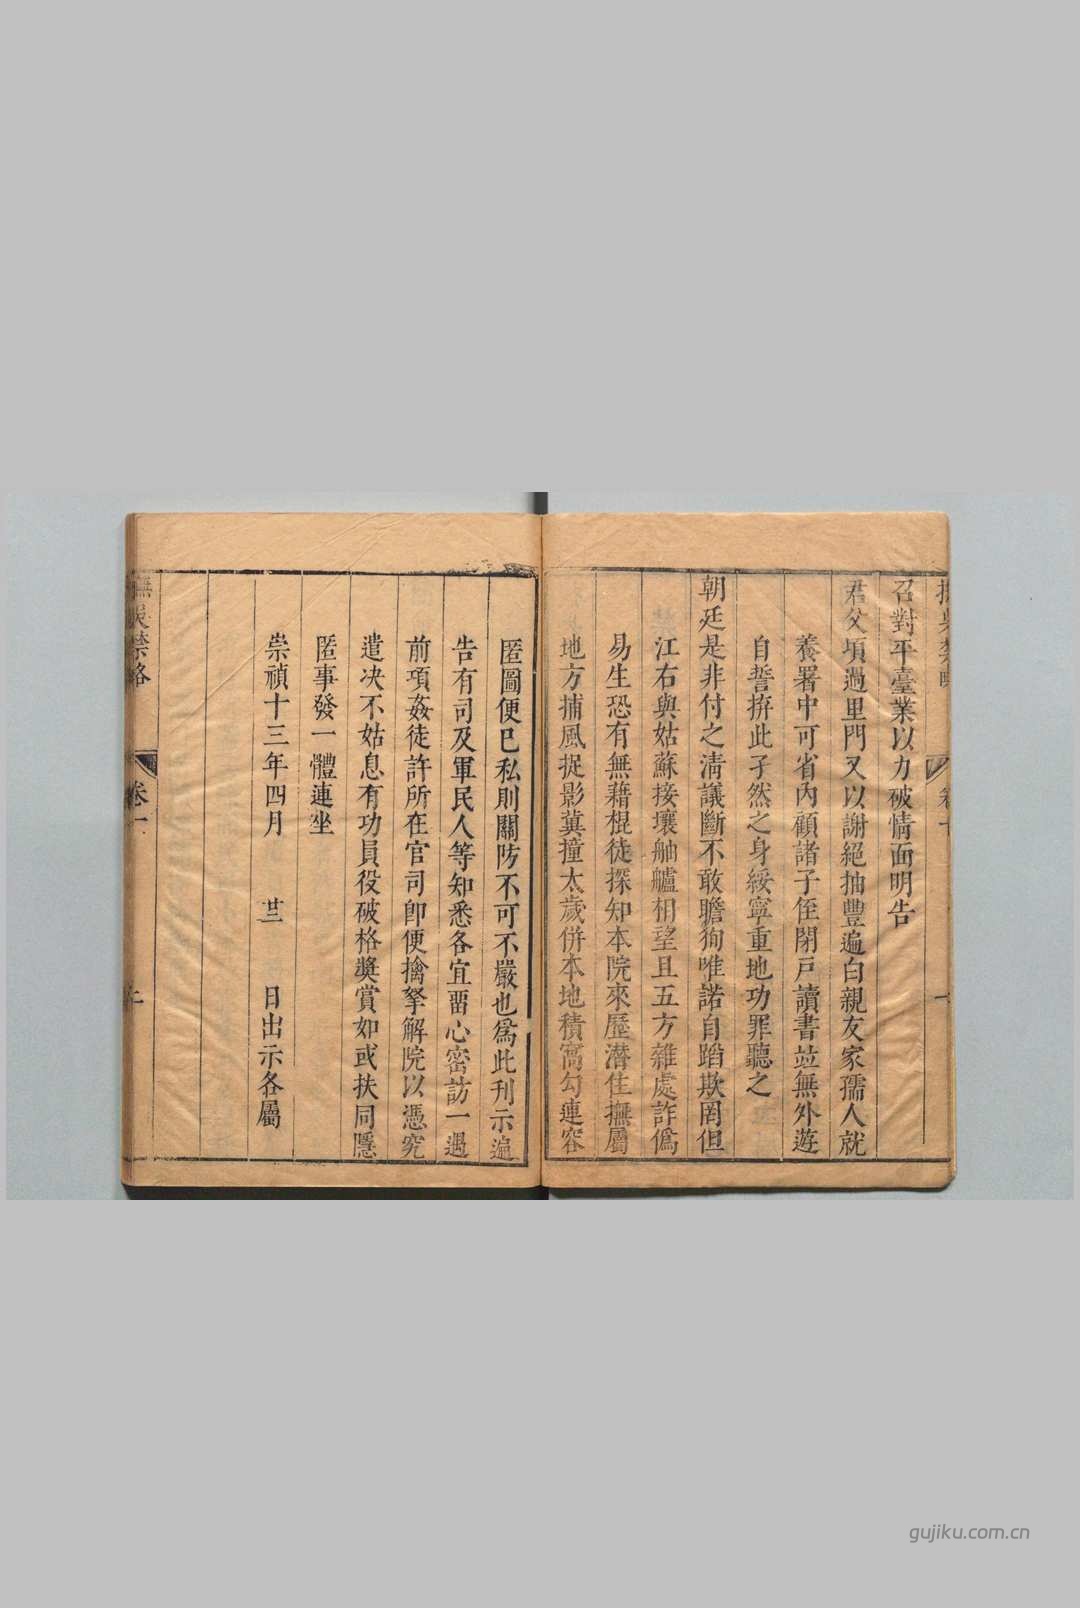 召對平臺業以力破情面明告
君父頃過里門又以謝絕抽豐遍白親友家孺人就
養署中可省內顧諸子侄閉戶讀書竝無外遊
自誓拚此孑然之身綏寧重地功罪聽之
朝廷是非付之淸議斷不敢瞻徇唯諾自蹈欺罔但
江右與姑蘇接壤舳艫相望且五方雜處詐僞
易生恐有無藉棍徒探知本院來歷潛住撫屬
地方捕風捉影冀撞太歲併本地積窩勾連容
匿圖便已私則關防不可不嚴也爲此刊示遍
告有司及軍民人等知悉各宜畱心密訪一遇
前項姦徒許所在官司卽便擒拏解院以憑究
遣决不姑息有功員役破格獎賞如或扶同隱
匿事發一體連坐
崇禎十三年四月 廿三 日出示各屬
撫吳檄略
卷一